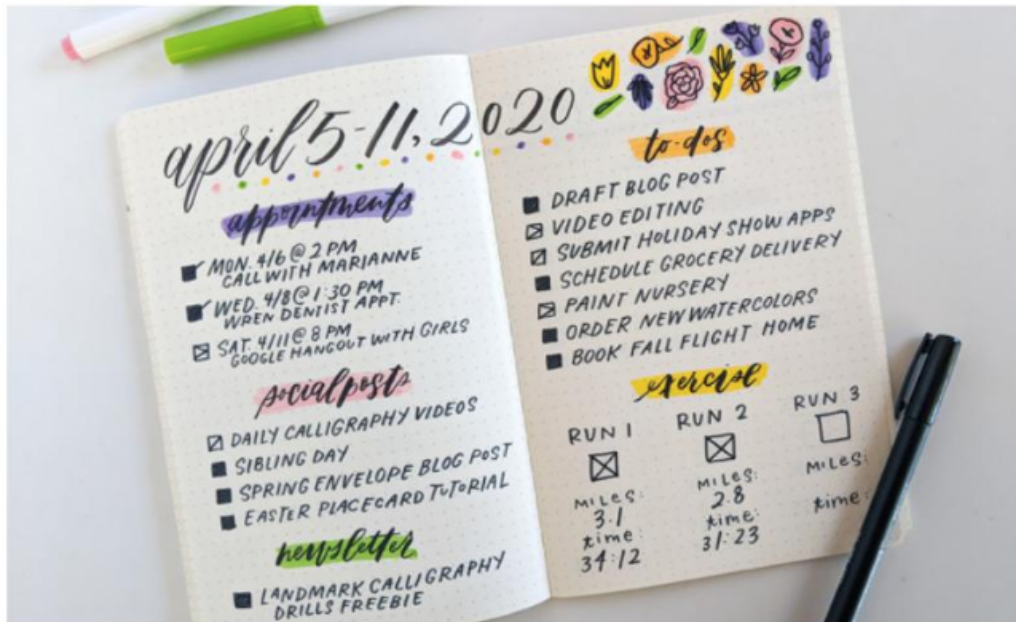 april 5-11, 2020
appointments
MON. 4/6 @ 2 PM
CALL WITH MARIANNE
WED. 4/8 @ 1:30 PM
WREN DENTIST APPT.
SAT. 4/11 @ 8 PM
GOOGLE HANGOUT WITH GIRLS
social posts
DAILY CALLIGRAPHY VIDEOS
SIBLING DAY
SPRING ENVELOPE BLOG POST
EASTER PLACECARD TUTORIAL
newsletter
LANDMARK CALLIGRAPHY
DRILLS FREEBIE
to-dos
DRAFT BLOG POST
VIDEO EDITING
SUBMIT HOLIDAY SHOW APPS
SCHEDULE GROCERY DELIVERY
PAINT NURSERY
ORDER NEW WATERCOLORS
BOOK FALL FLIGHT HOME
exercise
RUN 1
MILES:
3.1
time:
34:12
RUN 2
MILES:
2.8
time:
31:23
RUN 3
MILES:
time: